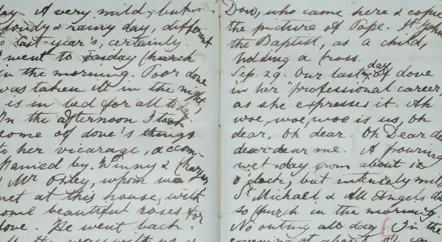 day. A very mild, but
cloudy & rainy day, different
to last year's, certainly.
went to Church
in the morning. Poor dove
was taken ill in the night,
is in bed for all to-day
In the afternoon I took
some of dove's things
to her vicarage, accom-
panied by Winny &
Mr Oxley, upon
met at this house, with
some beautiful roses for
dove. He went back
Dow, who came here & copied
the picture of Pope. St John
the Baptist, as a child,
holding a cross.
Sep. 29. Our last day of dove
in her professional career,
as she expresses it. Ah
woe, woe, woe is us, oh
dear, oh dear. Oh Dear oh
dear dear me. A pouring
wet day from about 12
o'clock, but intensely mild
St Michael & All Angels day
to church in the morning
No outing all day. In the